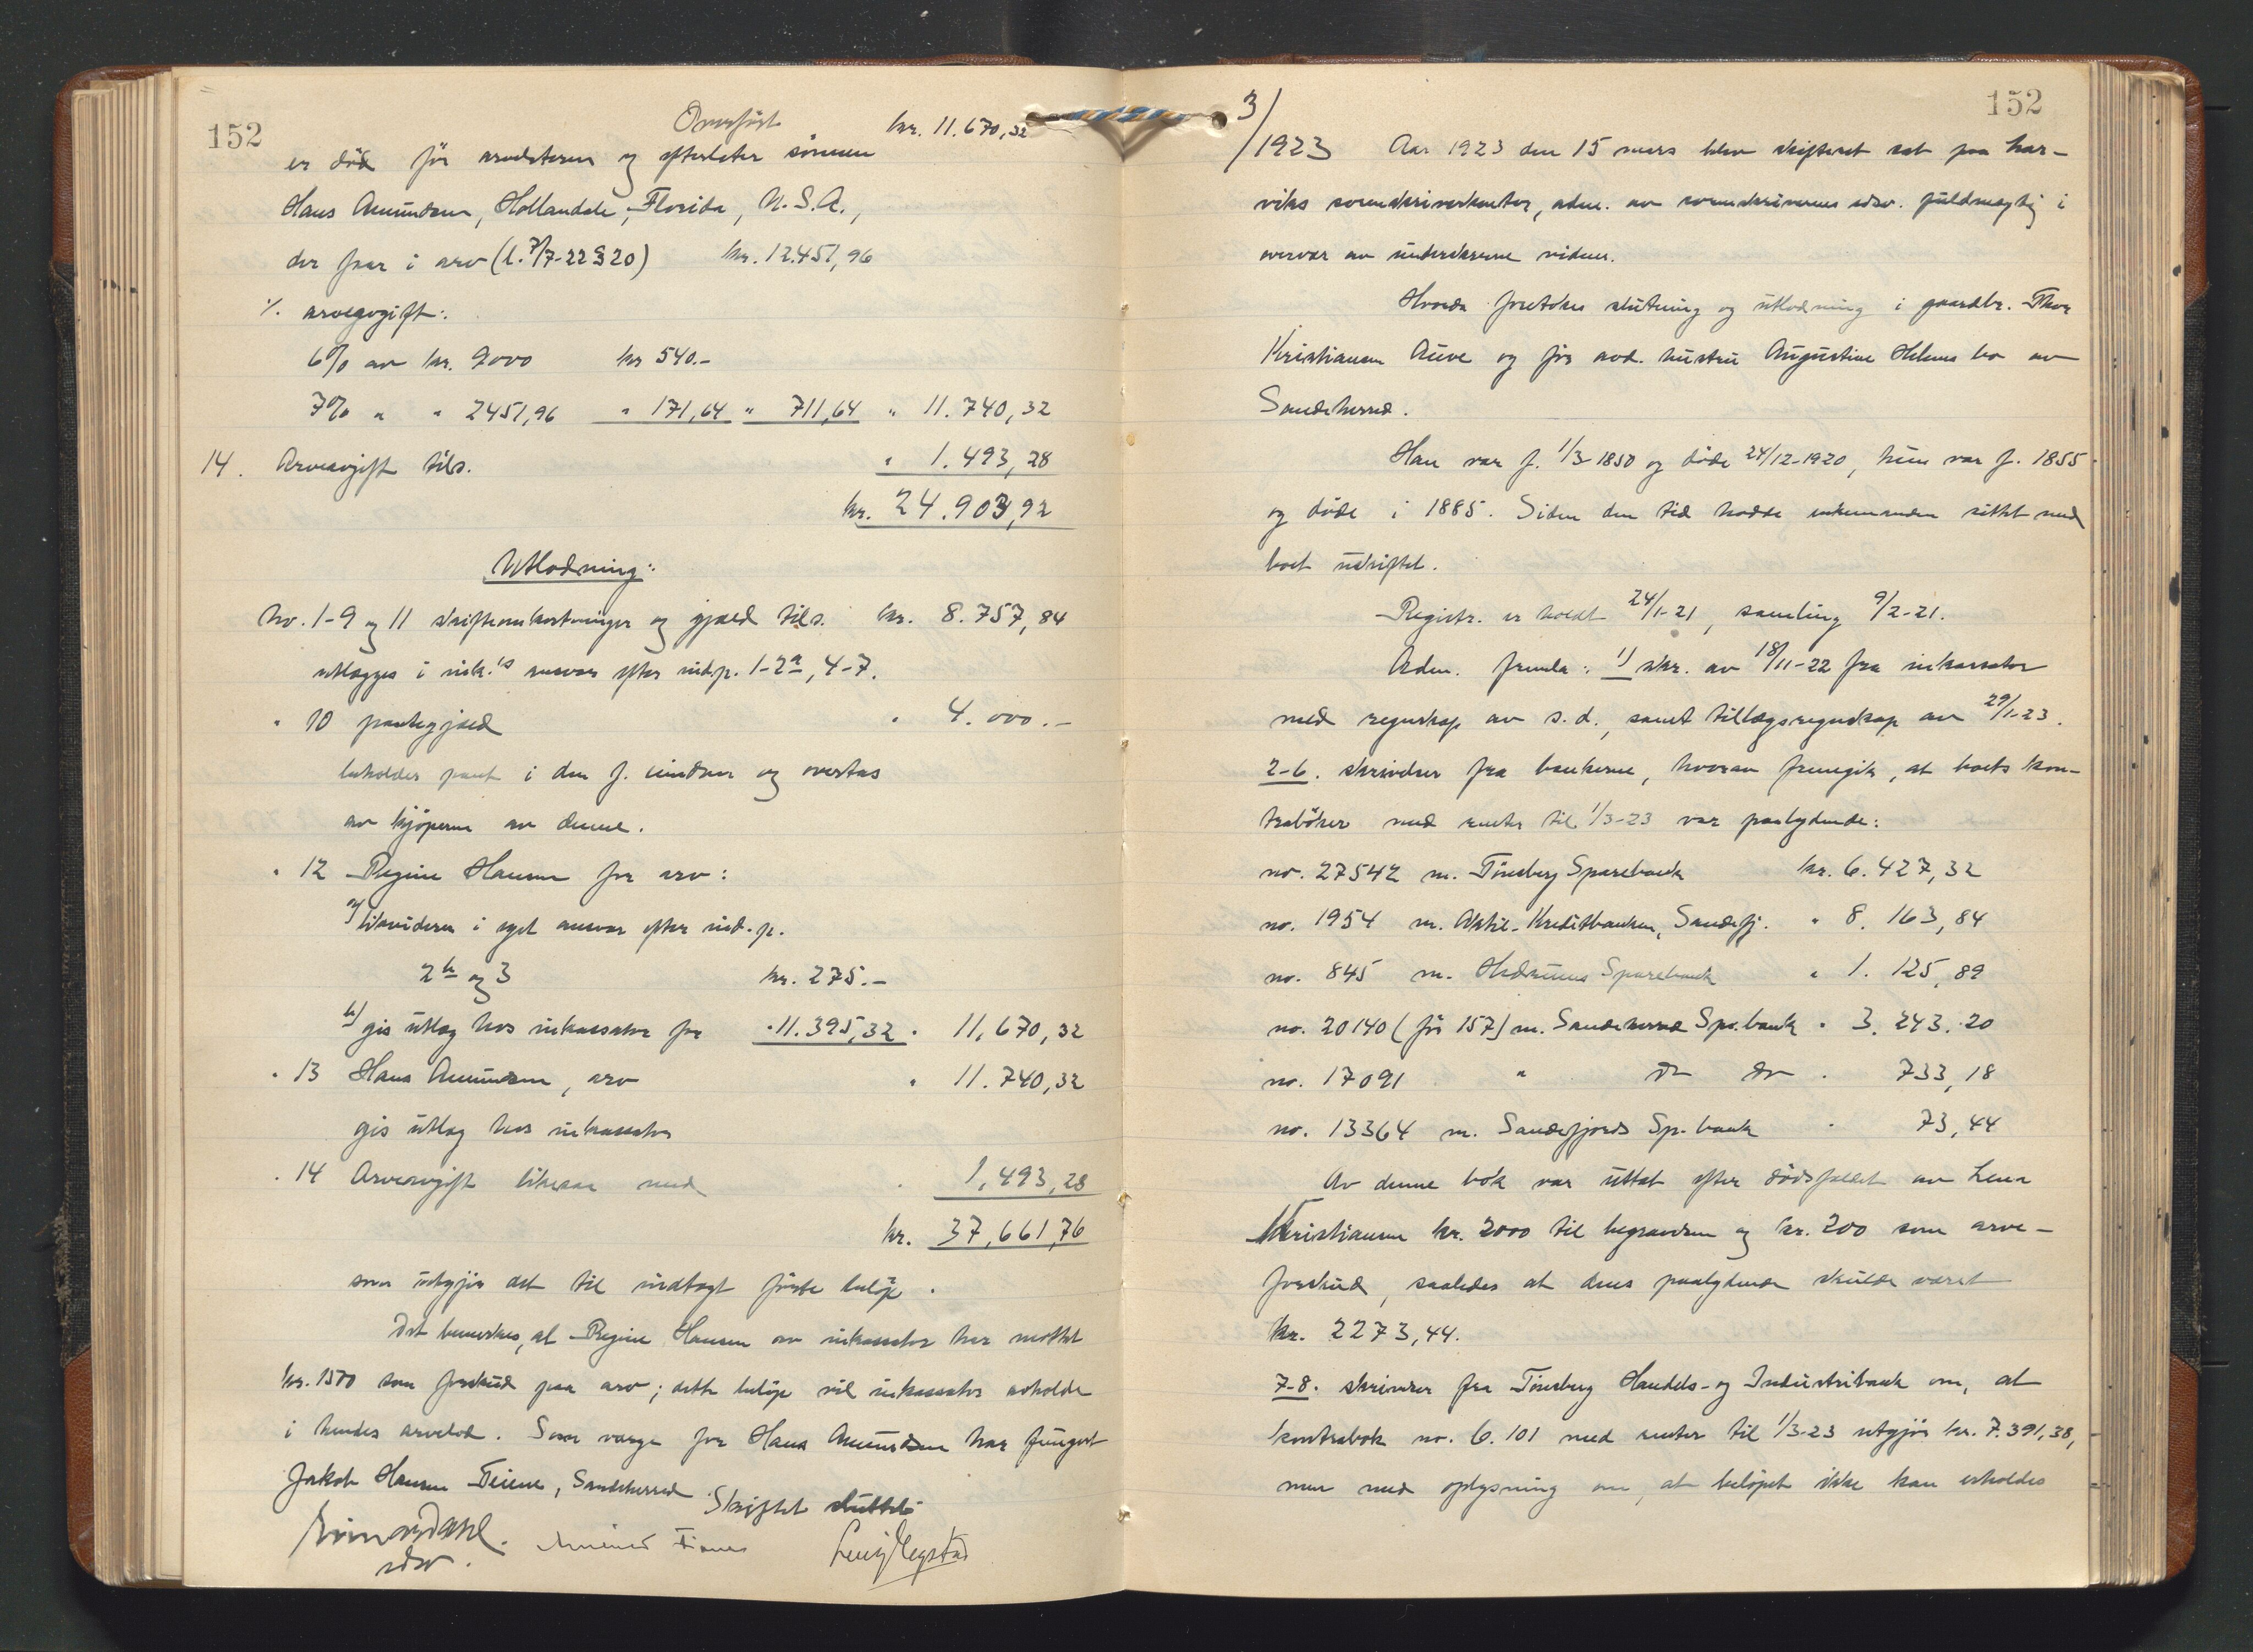 152
Overført kr. 11.670,32
er död för arvelateren og efterlater sönnen
Hans Amundsen, Hollandale, Florida, U.S.A.,
der faar i arv (l. 7/7-22 § 20) kr. 12.451,96
÷ arveavgift:
6% av kr. 9000 kr 540.-
7% " " 2451,96 " 171,64 " 711,64 " 11.740,32
14. Arveavgift tils. " 1.493,28
kr. 24.903,92
Utlodning:
No. 1-9 og 11 skifteomkostninger og gjæld tils. kr. 8.757,84
utlægges i ink.'s ansvar efter indp. 1-2a, 4-7.
" 10 pantegjæld " 4.000.-
beholder pant i den f. eiendom og overtas
av kjöperne av denne.
" 12 Regine Hansen for arv:
a) likviderer i eget ansvar efter ind.p.
2b og 3 kr. 275.-
b) gis utlæg hos inkassator for " 11.395,32 " 11,670,32
" 13 Hans Amundsen, arv " 11.740,32
gis utlæg hos inkassator
" 14 Arveavgift likesaa med " 1,493,28
kr. 37,661,76
som utgjör det til indtægt förte belöp.
Det bemerkes, at Regine Hansen av inkassator har mottat
kr. 1500 som forskud paa arv; dette belöp vil inkassator avholde
i hendes arvelod. Som værge for Hans Amundsen har fungert
Jakob Hansen Feien, Sandeherred Skiftet sluttet
edsv.
152
3/1923 Aar 1923 den 15 mars blev skifteret sat paa Lar-
viks sorenskriverkontor, adm. av sorenskriverens edsv. fuldmægtig i
overvær av underskrevne vidner.
Hvorda foretokes slutning og utlodning i gaardbr. Thor
Kristiansen Auve og för avd. hustru Augustine Helenes bo av
Sandeherred.
Han var f. 1/3-1850 og döde 24/12-1920, hun var f. 1855
og döde i 1885. Siden den tid hadde enkemanden sittet med
boet uskiftet.
Registr. er holdt 24/1-21, samling 9/2-21.
Adm. fremla: 1) skr. av 18/11-22 fra inkassator
med regnskap av s.d., samt tillægsregnskap av 29/1-23.
2-6. skrivelser fra bankerne, hvorav fremgik, at boets kon-
traböker med renter til 1/3-23 var paalydende:
no. 27542 m. Tönsberg Sparebank kr. 6.427,32
no. 1954 m. Aktie-Kreditbanken, Sandefj. " 8.163,84
no. 845 m. Hedrums Sparebank " 1.125,89
no. 20140 (för 157) m. Sandeherred Spb.bank " 3.243.20
no. 17091 " do do " 733,18
no. 13364 m. Sandefjords Sp.bank " 73,44
Av denne bok var uttat efter dödsfaldet av Lena
Kristiansen kr. 2000 til begravelsen og kr. 200 som arve-
forskud, saaledes at dens paalydende skulde været
kr. 2273,44.
7-8. skrivelser fra Tönsberg Handels- og Industribank om, at
kontrabok no. 6.101 med renter til 1/3-23 utgjör kr. 7.391,38,
men med oplysning om, at belöpet ikke kan erholdes